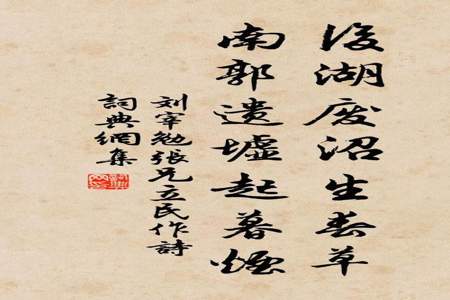 後湖废沼生春草
南郭遗墟起暮煙
刘宰勉張兄立民作詩
詞典網集